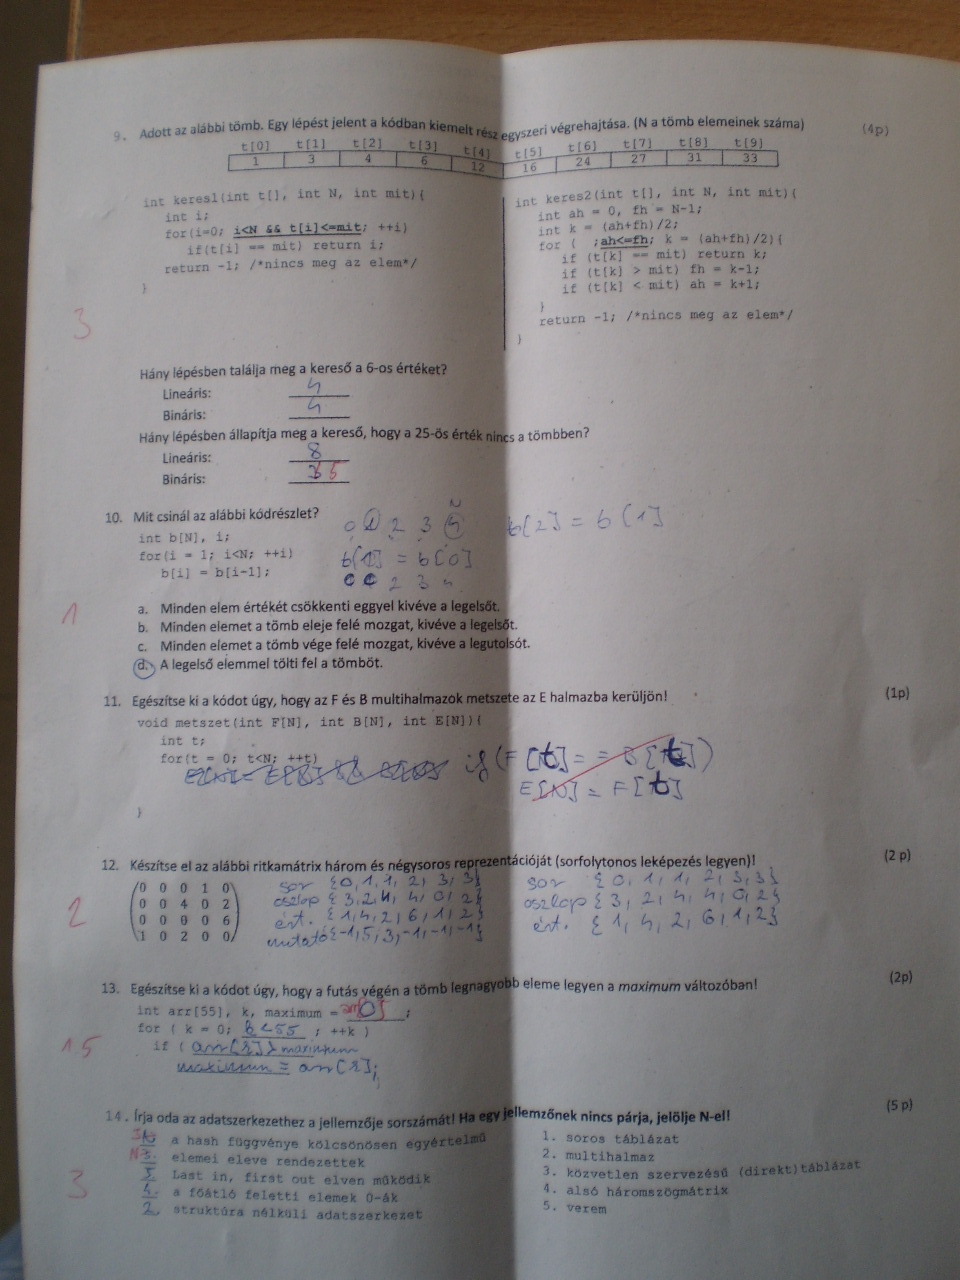 9. Adott az alábbi tömb. Egy lépést jelent a kódban kiemelt rész egyszeri végrehajtása. (N a tömb elemeinek száma) (4p)
t[0] t[1] t[2] t[3] t[4] t[5] t[6] t[7] t[8] t[9]
1 3 4 6 12 16 24 27 31 33
int keres1(int t[], int N, int mit){
int i;
for(i=0; i<N && t[i]<=mit; ++i)
if(t[i] == mit) return i;
return -1; /*nincs meg az elem*/
}
int keres2(int t[], int N, int mit){
int ah = 0, fh = N-1;
int k = (ah+fh)/2;
for ( ;ah<=fh; k = (ah+fh)/2){
if (t[k] == mit) return k;
if (t[k] > mit) fh = k-1;
if (t[k] < mit) ah = k+1;
}
return -1; /*nincs meg az elem*/
}
3
Hány lépésben találja meg a kereső a 6-os értéket?
Lineáris: 4
Bináris: 4
Hány lépésben állapítja meg a kereső, hogy a 25-ös érték nincs a tömbben?
Lineáris: 8
Bináris: 5
10. Mit csinál az alábbi kódrészlet?
int b[N], i;
for(i = 1; i<N; ++i)
b[i] = b[i-1];
N
0 1 2 3 4
b[1] = b[0]
2 3 4
b[2] = b[1]
1
a. Minden elem értékét csökkenti eggyel kivéve a legelsőt.
b. Minden elemet a tömb eleje felé mozgat, kivéve a legelsőt.
c. Minden elemet a tömb vége felé mozgat, kivéve a legutolsót.
d. A legelső elemmel tölti fel a tömböt.
11. Egészítse ki a kódot úgy, hogy az F és B multihalmazok metszete az E halmazba kerüljön! (1p)
void metszet(int F[N], int B[N], int E[N]){
int t;
for(t = 0; t<N; ++t)
if (F[t] == B[t])
E[N] = F[t]
}
12. Készítse el az alábbi ritkamátrix három és négysoros reprezentációját (sorfolytonos leképezés legyen)! (2 p)
0 0 0 1 0
0 0 4 0 2
0 0 0 0 6
1 0 2 0 0
sor {0,1,1,2,3,3}
oszlop {3,2,4,4,0,2}
ért. {1,4,2,6,1,2}
mutató {-1,5,3,-1,-1,-1}
sor {0,1,1,2,3,3}
oszlop {3,2,4,4,0,2}
ért. {1,4,2,6,1,2}
2
13. Egészítse ki a kódot úgy, hogy a futás végén a tömb legnagyobb eleme legyen a maximum változóban! (2p)
int arr[55], k, maximum = arr[0];
for ( k = 0; k<55 ; ++k )
if ( arr[k]>maximum
maximum = arr[k];
1.5
14. Írja oda az adatszerkezethez a jellemzője sorszámát! Ha egy jellemzőnek nincs párja, jelölje N-el! (5 p)
a hash függvénye kölcsönösen egyértelmű
N elemei eleve rendezettek
5. Last in, first out elven működik
4. a főátló feletti elemek 0-ák
2. struktúra nélküli adatszerkezet
1. soros táblázat
2. multihalmaz
3. közvetlen szervezésű (direkt)táblázat
4. alsó háromszögmátrix
5. verem
3